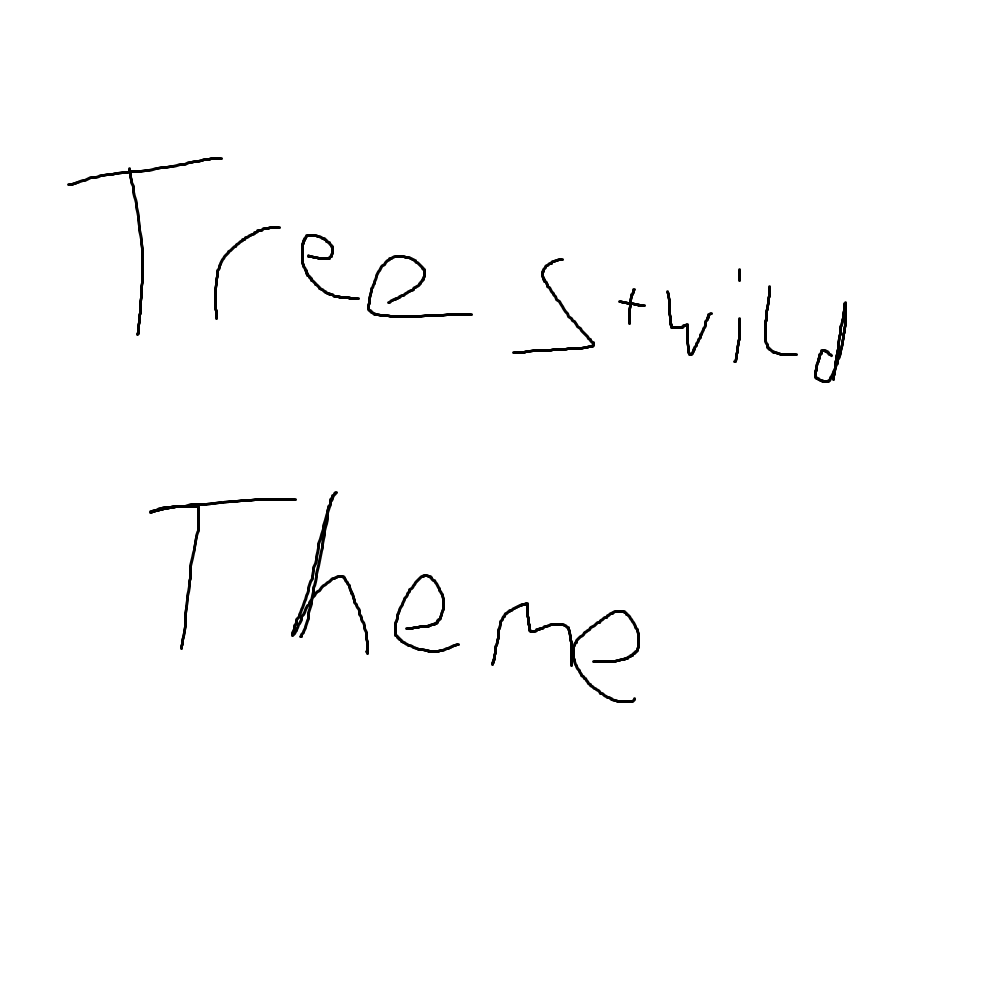 Trees+wild
Theme